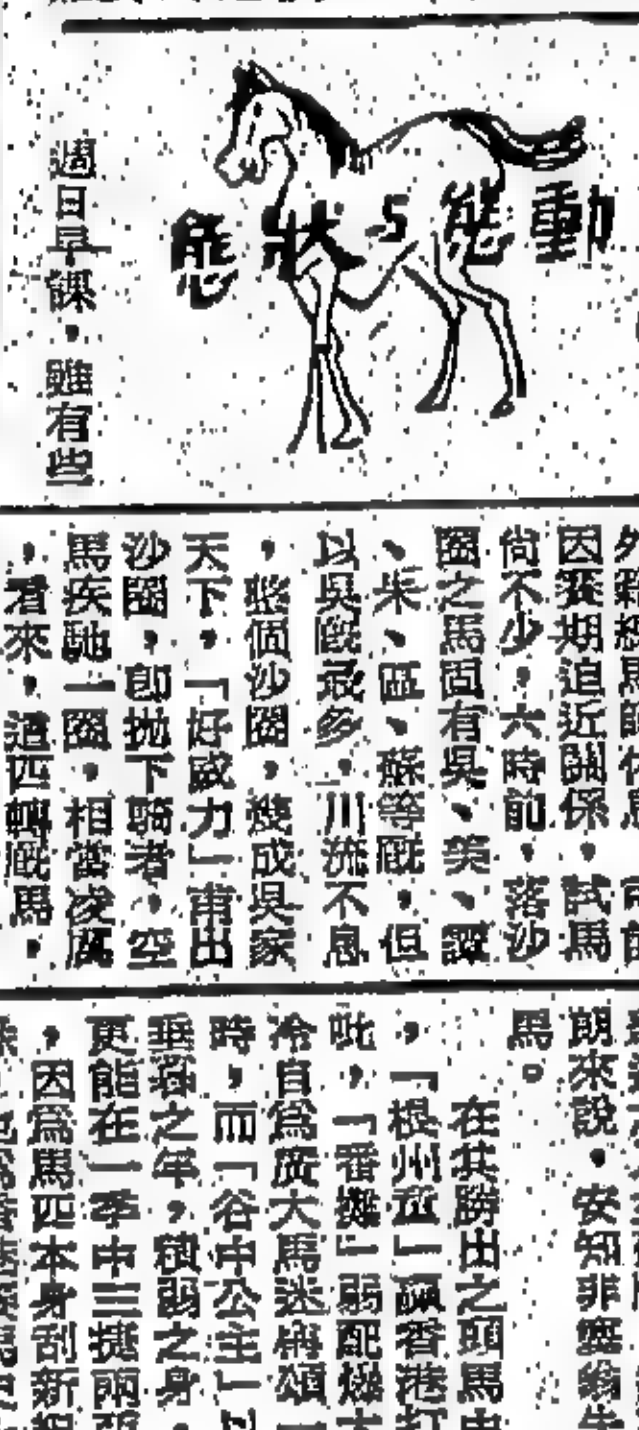 動態与狀態
週日早課，雖有些
因賽期迫近關係，試馬
尚不少，六時前，落沙
圈之馬固有吳、美、譚
、朱、區、蘇等厩，但
以吳厩最多，川流不息
，整個沙圈，幾成吳家
天下，「好威力」甫出
沙圈，卽拋下騎者，空
馬疾馳一圈，相當凌厲
，看來，這匹轉厩馬，
朗來說，安知非塞翁失
馬。
在其勝出之頭馬中
，「根州童」諷香港打
吡，「番攤」弱配爆大
冷自爲廣大馬迷稱頌一
時，而「谷中公主」以
垂暮之年，積弱之身，
更能在一季中三捷兩
，因爲馬匹本身刮新